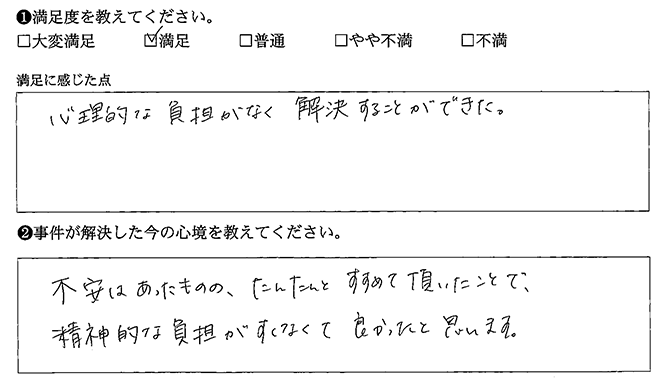 ❶満足度を教えてください。
□大変満足 ☑満足 □普通 □やや不満 □不満
満足に感じた点
心理的な負担がなく解決することができた。
❷事件が解決した今の心境を教えてください。
不安はあったものの、たんたんとすすめて頂いたことで、
精神的な負担がすくなくて良かったと思います。